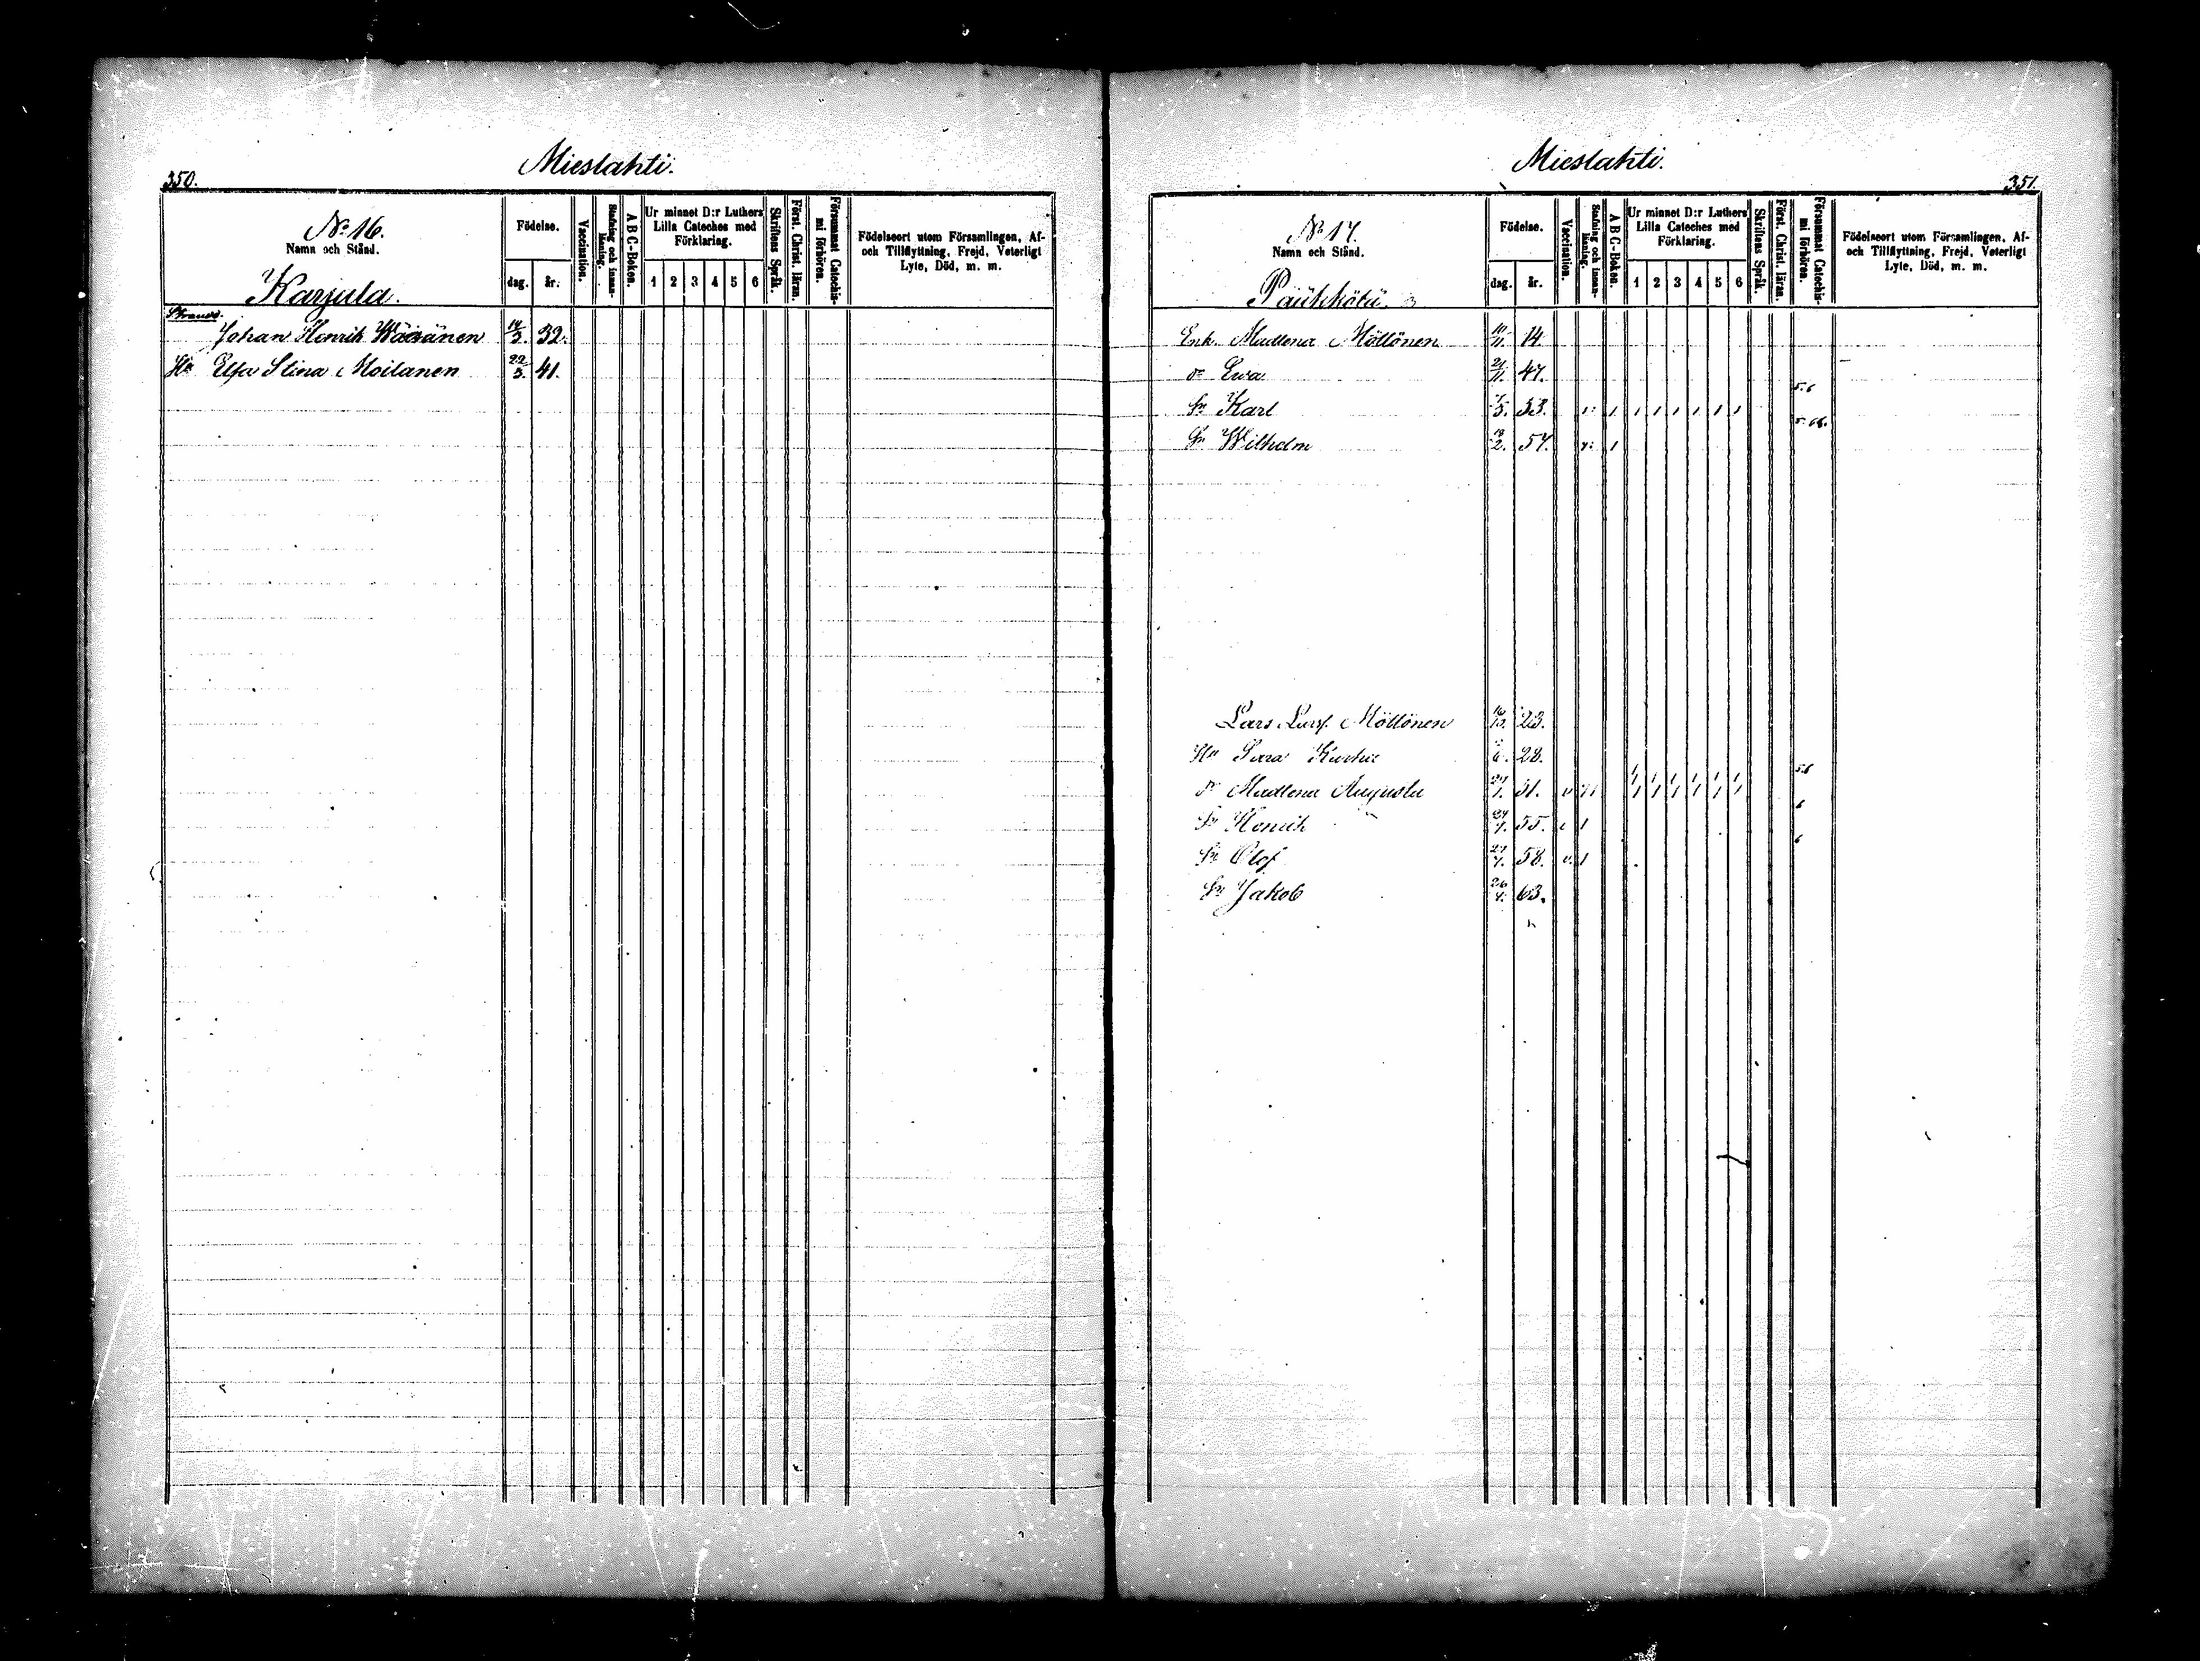 350.
Mieslahti.
No 16.
Namn och Stånd.
Karjula.
Födelse.
dag. år.
Vaccination.
Stafning och innan-läsning.
A B C-Boken.
Ur minnet D:r Luthers Lilla Cateches med Förklaring.
1 2 3 4 5 6
Skriftens Språk.
Först. Christ. läran.
Försummat Catechis-mi förhören.
Födelseort utom Församlingen, Af- och Tillflyttning, Frejd, Veterligt Lyte, Död, m. m.
Johan Henrik Wäisänen 14/3. 32.
Hu Elsa Stina Moilanen 22/3. 41.
Mieslahti.
351.
No 17.
Namn och Stånd.
Födelse.
dag. år.
Vaccination.
Stafning och innan-läsning.
A B C-Boken.
Ur minnet D:r Luthers Lilla Cateches med Förklaring.
1 2 3 4 5 6
Skriftens Språk.
Först. Christ. läran.
Försummat Catechis-mi förhören.
Födelseort utom Församlingen, Af- och Tillflyttning, Frejd, Veterligt Lyte, Död, m. m.
Enk. Madlena Möttönen 10/11. 14.
dr Ewa 21/11. 47.
Sn Karl 53.
Sn Wilhelm 18/2. 57.
Lars Larss. Möttönen 16/10. 23.
Hu Sara 28.
dr Madlena Augusta 51.
Sn Henrik 55.
Sn Olof 58.
Sn Jakob 26/4. 63.